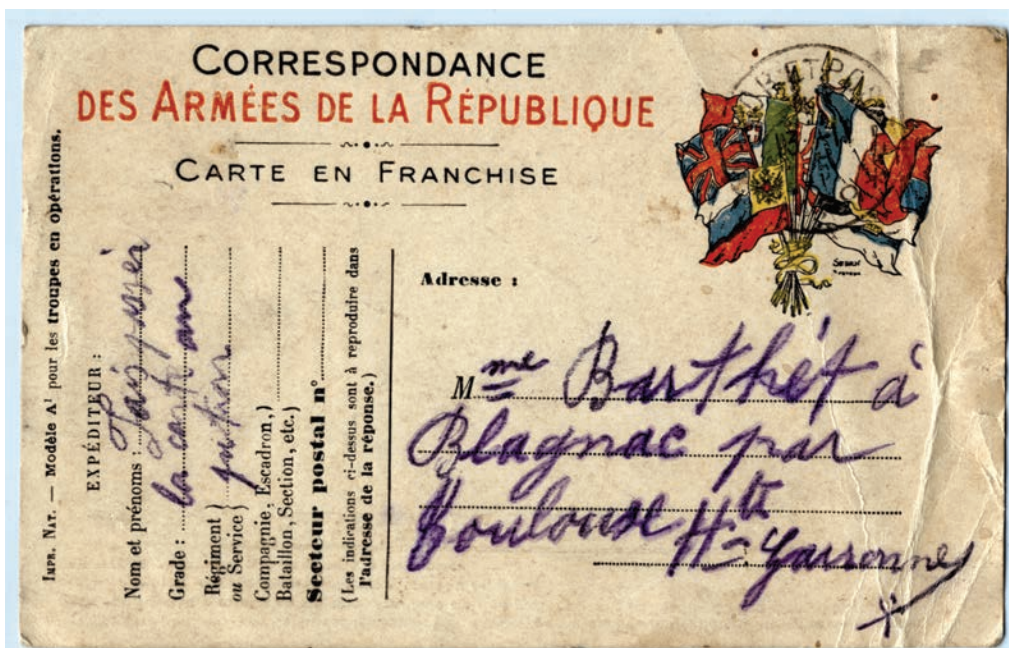 CORRESPONDANCE
DES ARMÉES DE LA RÉPUBLIQUE
CARTE EN FRANCHISE
Impr. Nat. — Modèle A¹ pour les troupes en opérations.
EXPÉDITEUR :
Nom et prénoms :
Grade : la carte
Régiment
ou Service}
Compagnie, Escadron,)
Bataillon, Section, etc.)
Secteur postal n°
(Les indications ci-dessus sont à reproduire dans
l'adresse de la réponse.)
Adresse :
Mme Barthét à
Blagnac par
Toulouse Hte
Garonne